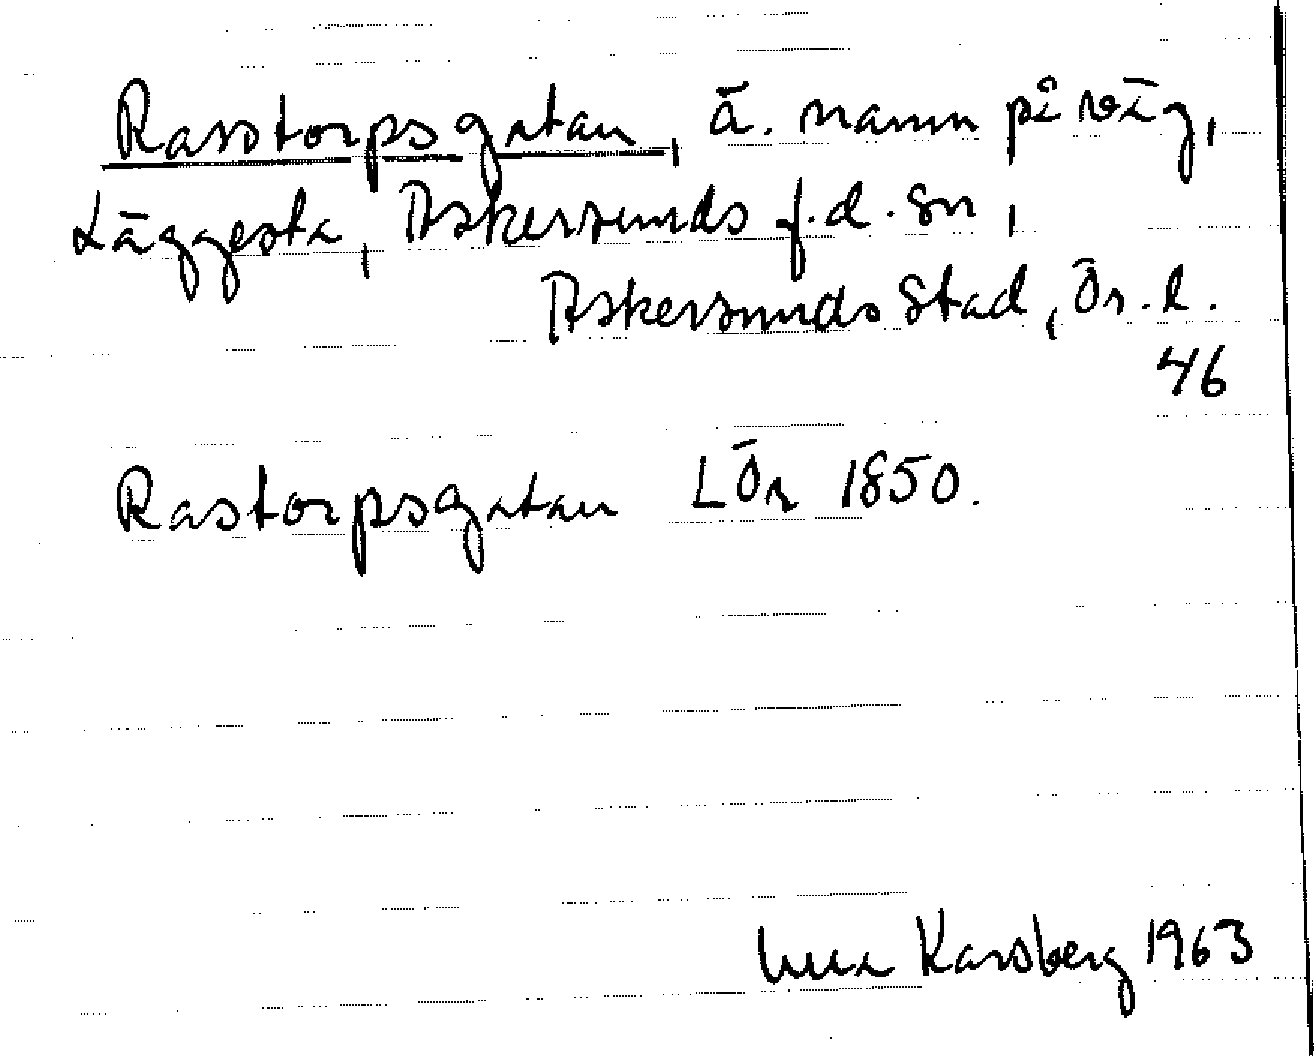 Rasstorpsgatan, ä. namn på väg,
Läggesta, Askersunds f.d. sn,
Askersunds stad, Ör. l.
46
Rastorpsgatan LÖr 1850.
Karsberg 1963